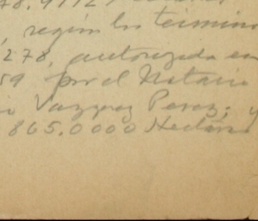 78.9172
, según los términos
278, autorizada en
59 por el Notario
Vazquez Perez; y
865.0000 Hectáreas